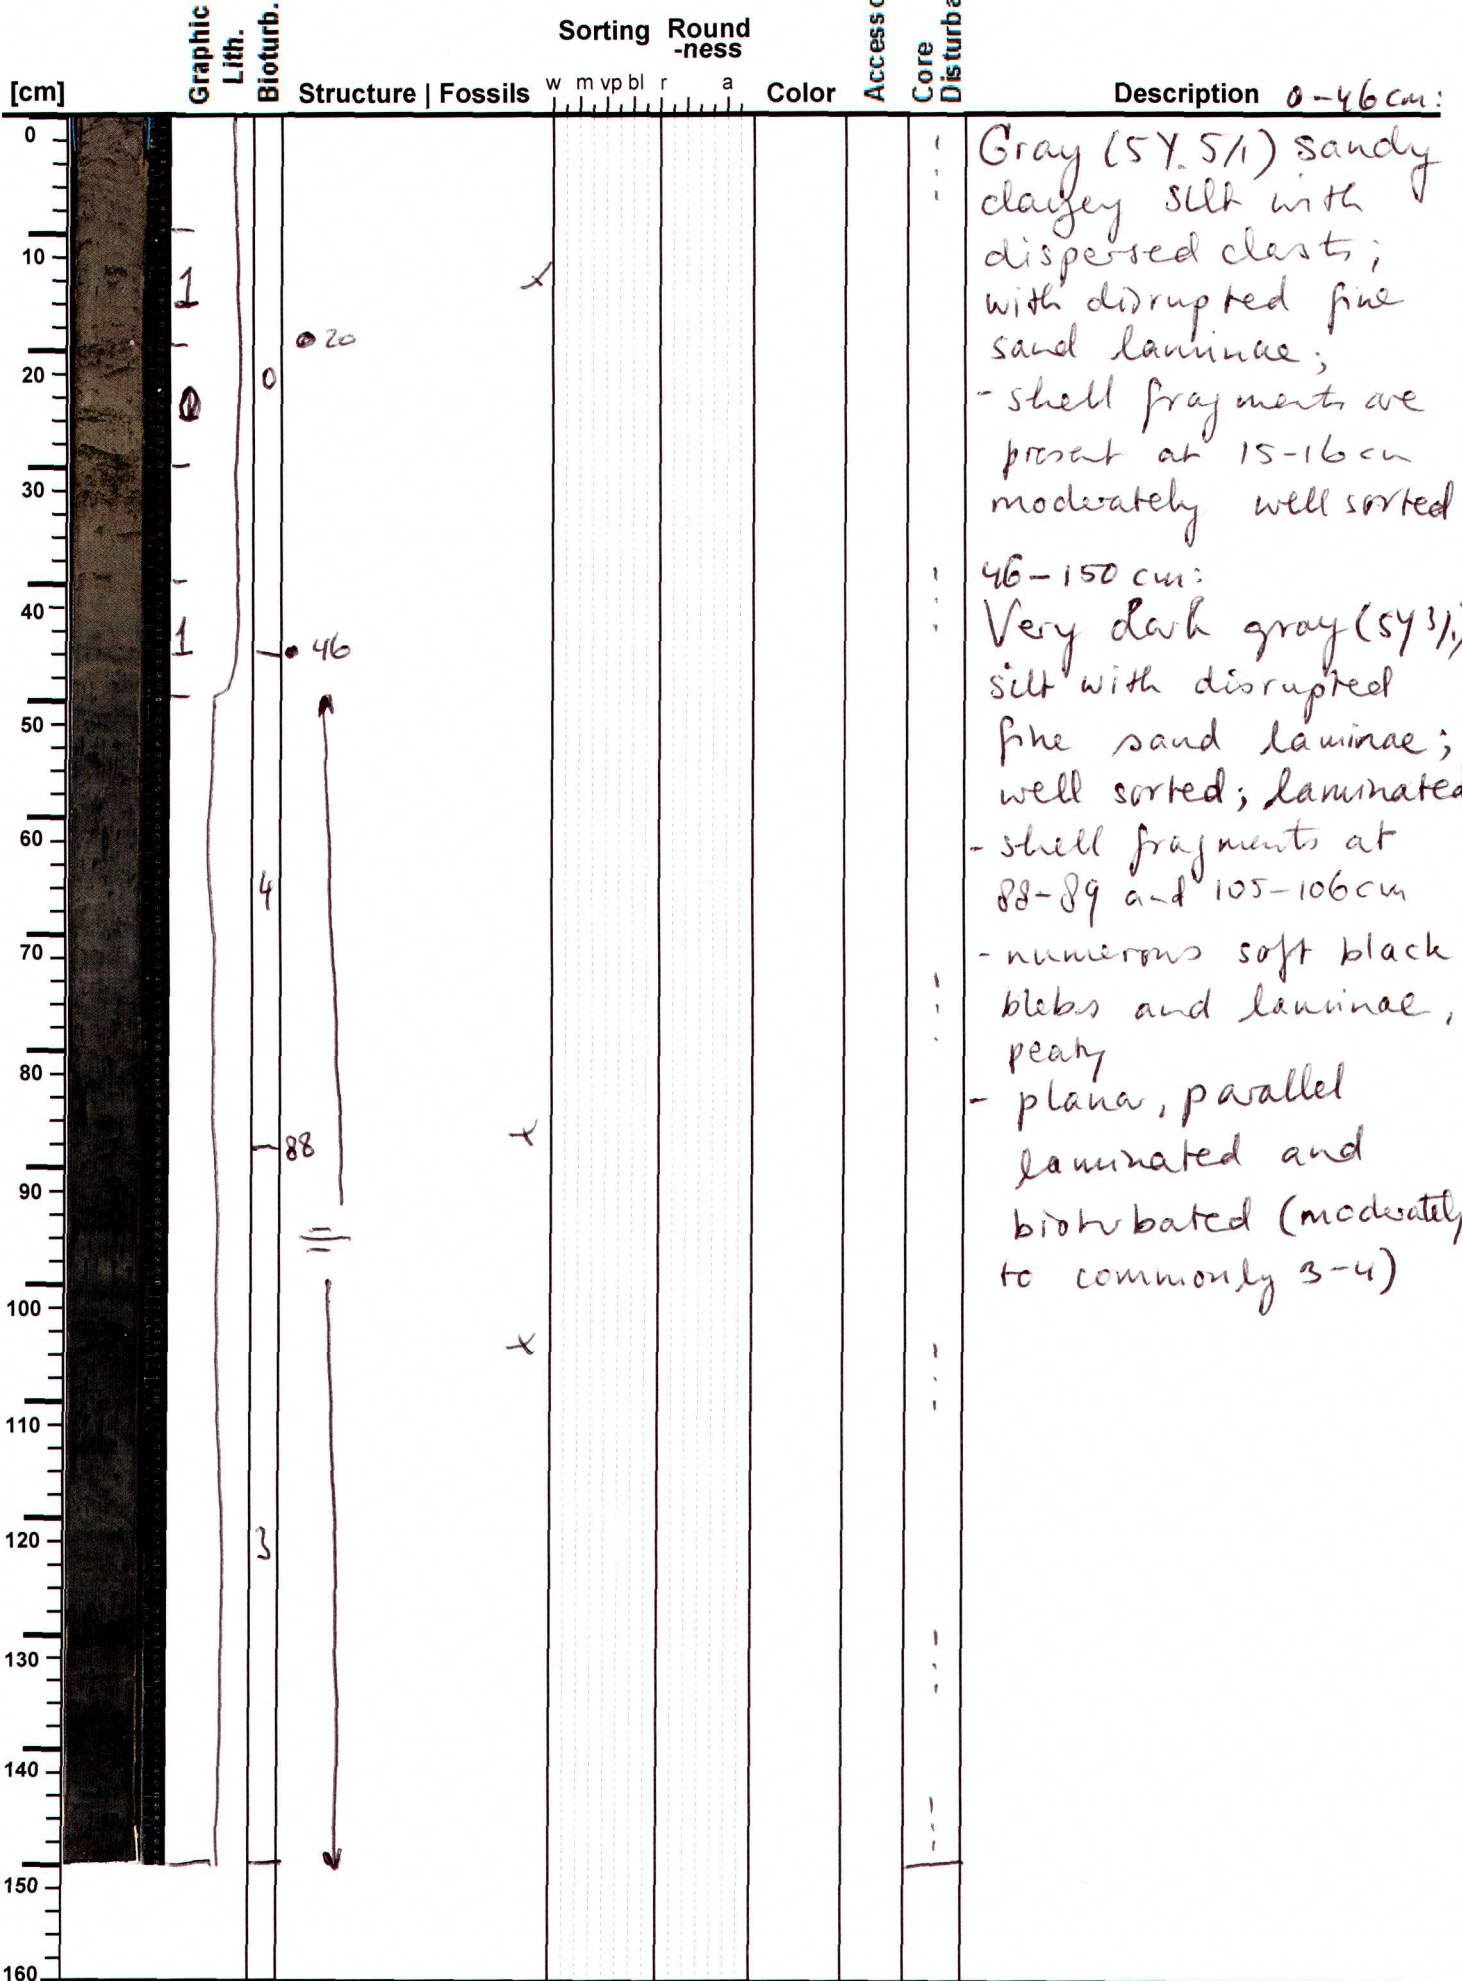 Graphic
Lith.
Bioturb.
Structure | Fossils
Sorting
w m vp bl
Round
-ness
r a
Color
Core
Description 0-46 cm:
[cm]
0
10
20
30
40
50
60
70
80
90
100
110
120
130
140
150
160
1
1
0
4
3
20
46
88
Gray (5Y 5/1) sandy
clayey silt with
dispersed clasts;
with disrupted fine
sand laminae;
- shell fragments are
present at 15-16 cm
moderately well sorted
46-150 cm:
Very dark gray (5Y 3/1)
silt with disrupted
fine sand laminae;
well sorted; laminated
- shell fragments at
88-89 and 105-106 cm
- numerous soft black
blebs and laminae,
peaty
- planar, parallel
laminated and
bioturbated (moderately
to commonly 3-4)